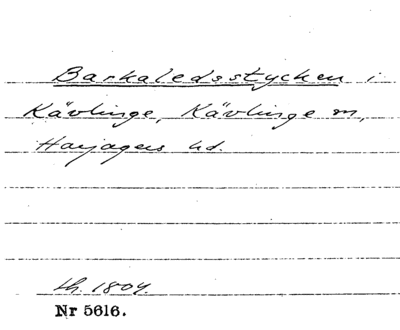 Barkaledsstycken i
Kävlinge, Kävlinge sn,
Harjagers hd.
sh. 1804.
Nr 5616.